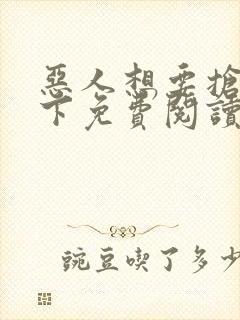 惡人想要搶
下免費閱讀
豌豆喫了多少